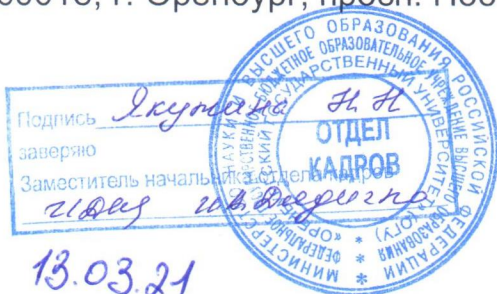 г. Оренбург, просп.
Подпись Якупина Н. Н
заверяю
Заместитель начальника отдела кадров
13.03.21
МИНИСТЕРСТВО НАУКИ И ВЫСШЕГО ОБРАЗОВАНИЯ РОССИЙСКОЙ ФЕДЕРАЦИИ
ФЕДЕРАЛЬНОЕ ГОСУДАРСТВЕННОЕ БЮДЖЕТНОЕ ОБРАЗОВАТЕЛЬНОЕ УЧРЕЖДЕНИЕ ВЫСШЕГО ОБРАЗОВАНИЯ
«ОРЕНБУРГСКИЙ ГОСУДАРСТВЕННЫЙ УНИВЕРСИТЕТ» (ОГУ)
ОТДЕЛ
КАДРОВ